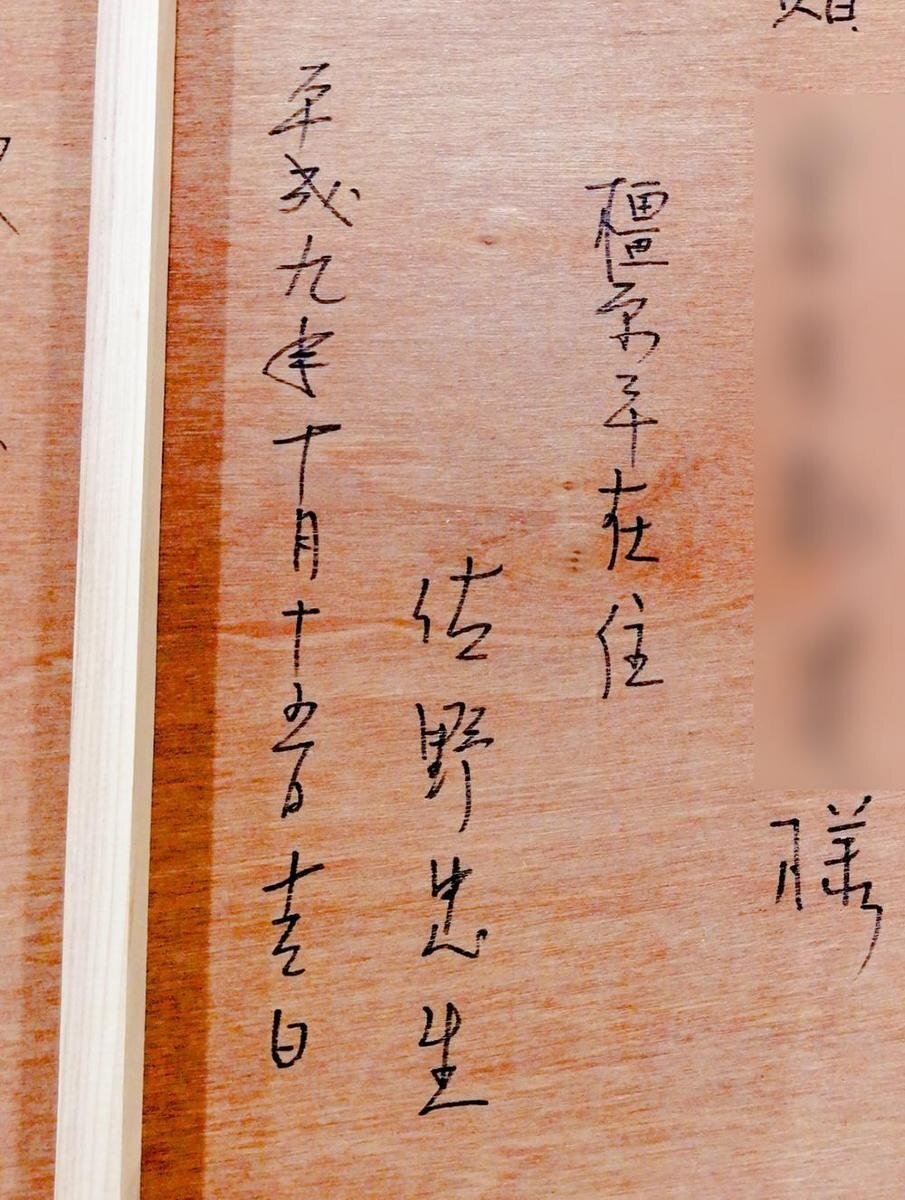 様
橿原市在住
佐野忠生
平成九年十月十五日吉日